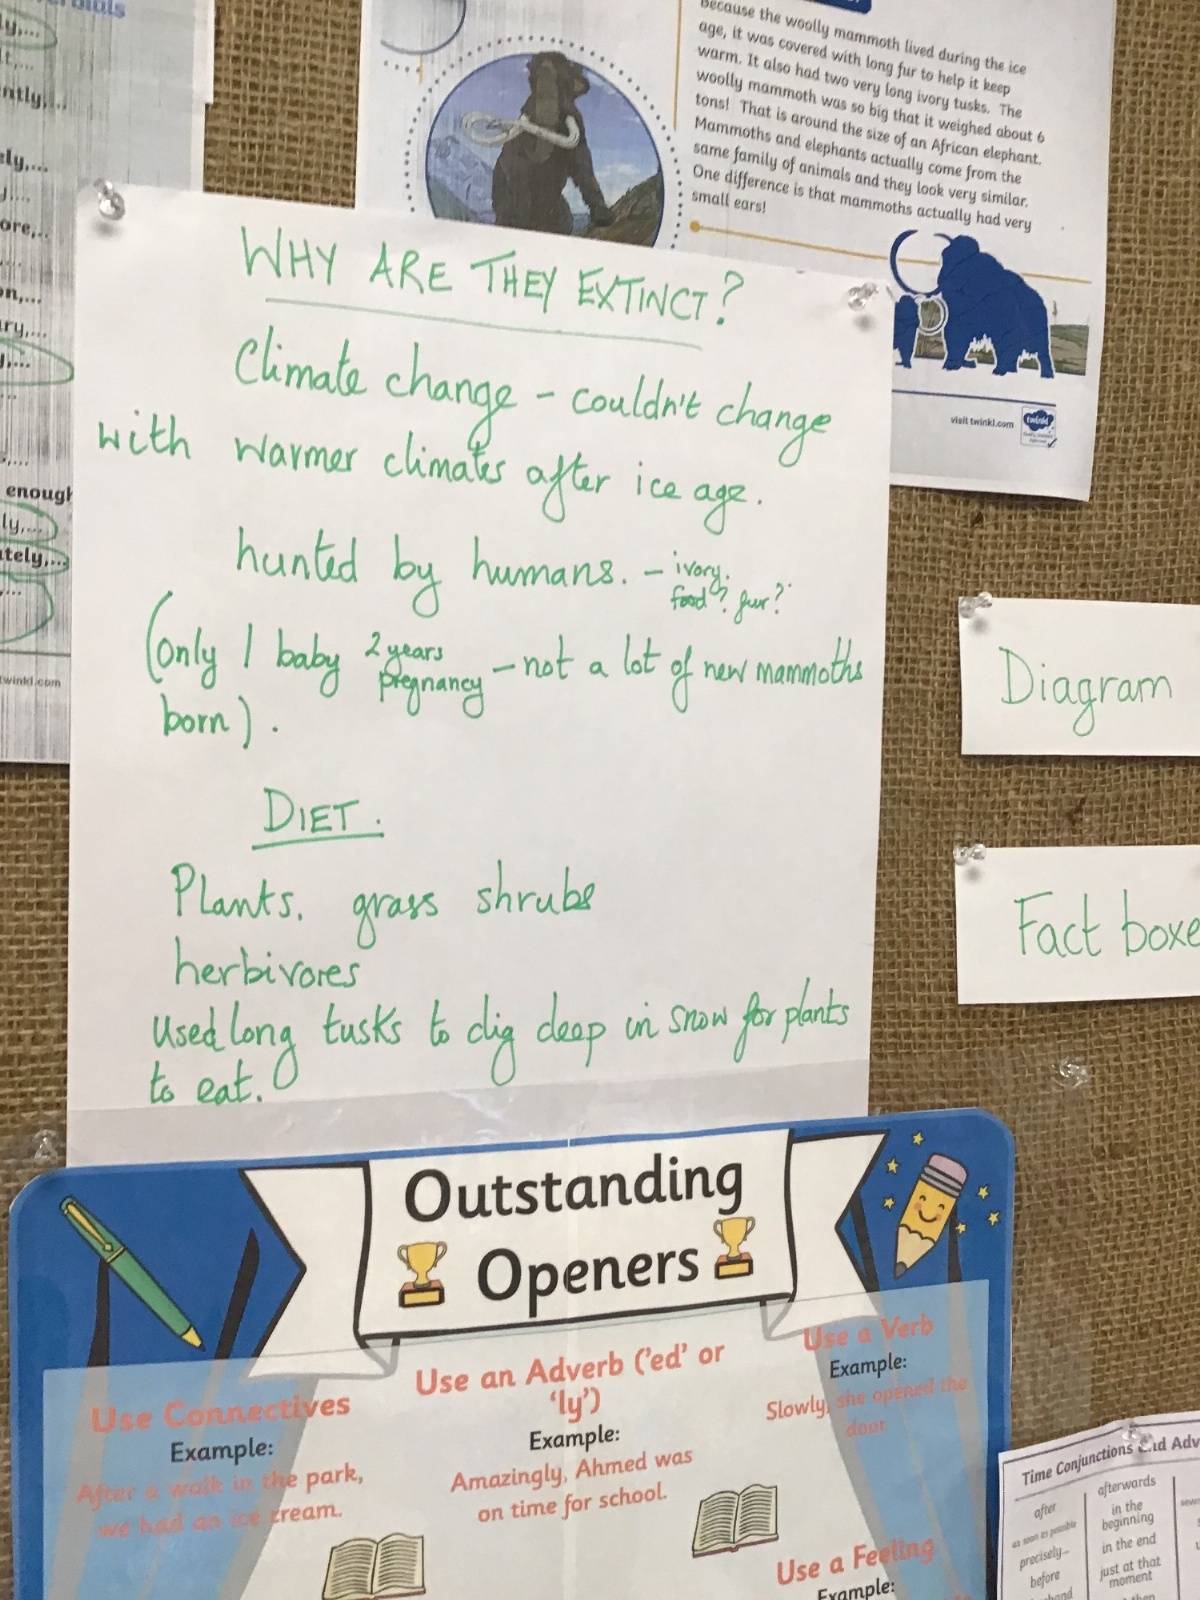 Because the woolly mammoth lived during the ice
age, it was covered with long fur to help it keep
warm. It also had two very long ivory tusks. The
woolly mammoth was so big that it weighed about 6
tons! That is around the size of an African elephant.
Mammoths and elephants actually come from the
same family of animals and they look very similar.
One difference is that mammoths actually had very
small ears!
visit twinkl.com
twinkl
WHY ARE THEY EXTINCT?
Climate change - couldn't change
with warmer climates after ice age.
hunted by humans. - ivory.
food? fur?
(only 1 baby 2 years
pregnancy - not a lot of new mammoths
born).
DIET.
Plants. grass shrubs
herbivores
Used long tusks to dig deep in snow for plants
to eat.
enough
twinkl.com
Diagram
Fact boxe
Outstanding
Openers
Use Connectives
Example:
After a walk in the park,
we had an ice cream.
Use an Adverb ('ed' or
'ly')
Example:
Amazingly, Ahmed was
on time for school.
Use a Verb
Example:
Slowly, she opened the
door.
Use a Feeling
Example:
Time Conjunctions and Adv
after
as soon as possible
precisely...
before
afterwards
in the
beginning
in the end
just at that
moment